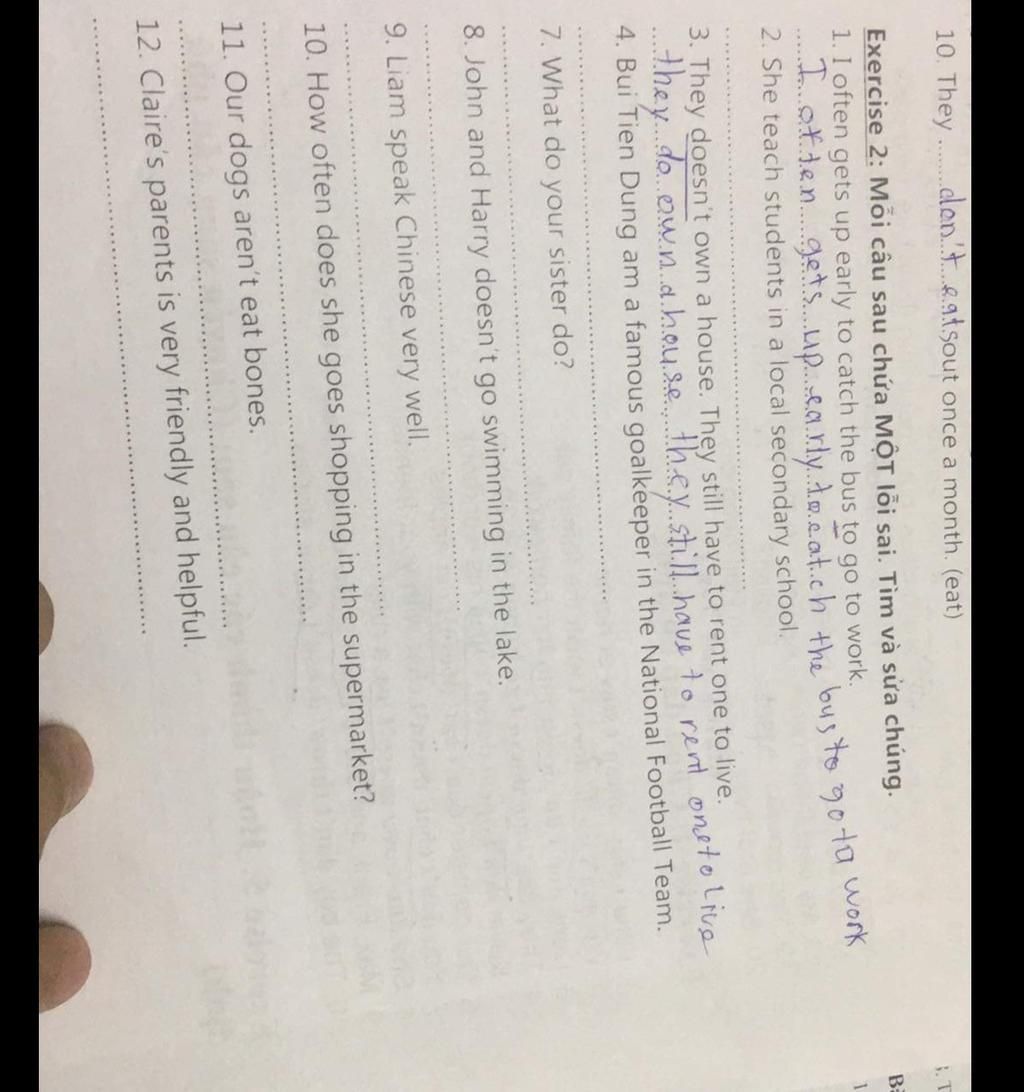 10. They ......don't eatsout once a month. (eat)
Exercise 2: Mỗi câu sau chứa MỘT lỗi sai. Tìm và sửa chúng.
1. I often gets up early to catch the bus to go to work.
I often gets up early to catch the bus to go to work
2. She teach students in a local secondary school.
3. They doesn't own a house. They still have to rent one to live.
they do own a house they still have to rent one to live
4. Bui Tien Dung am a famous goalkeeper in the National Football Team.
7. What do your sister do?
8. John and Harry doesn't go swimming in the lake.
9. Liam speak Chinese very well.
10. How often does she goes shopping in the supermarket?
11. Our dogs aren't eat bones.
12. Claire's parents is very friendly and helpful.